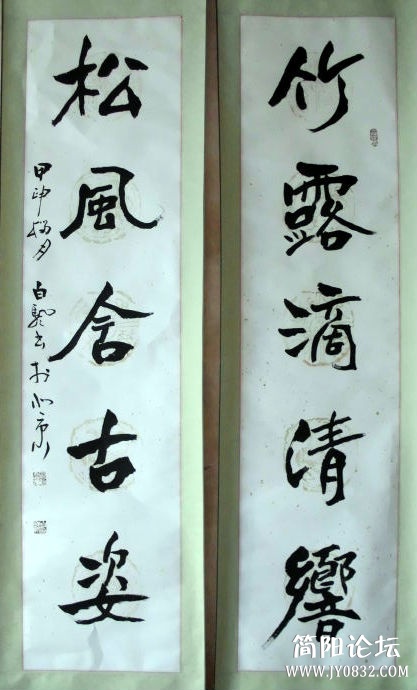 竹露滴清響
松風含古姿
甲申 月 白 书 於
简阳论坛
www.JY0832.com